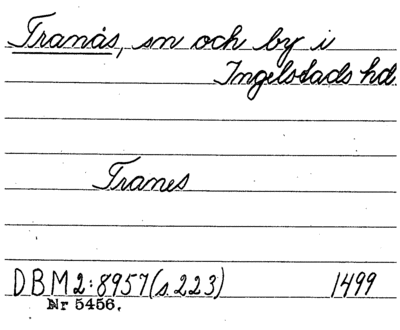 Tranås, sn och by i
Ingelstads hd
Tranes
DBM2:8957(s.223) 1499
Nr 5456.